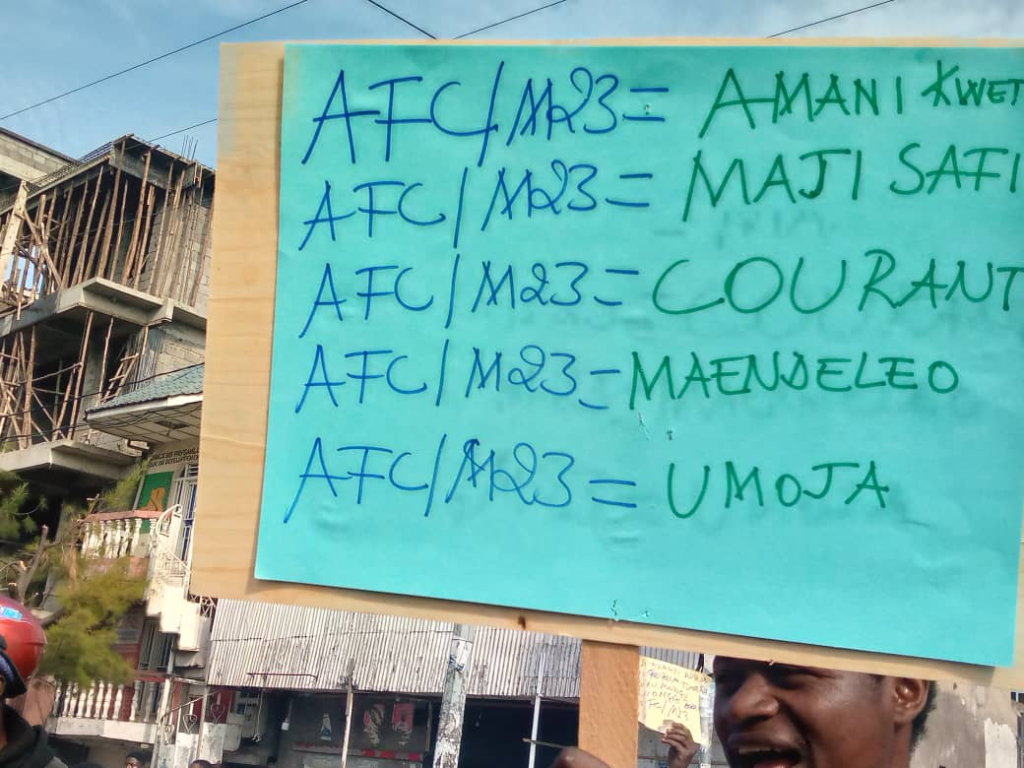 AFC/M23= AMANI KWET
AFC/M23= MAJI SAFI
AFC/M23= COURANT
AFC/M23= MAENDELEO
AFC/M23= UMOJA